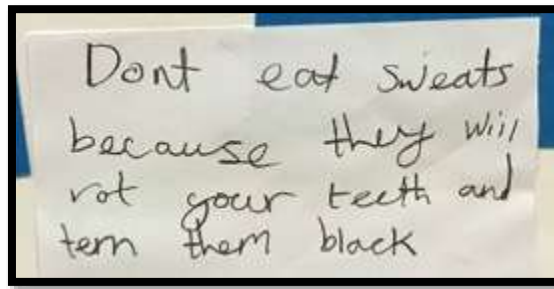 Dont eat sweats
because they will
rot your teeth and
tern them black